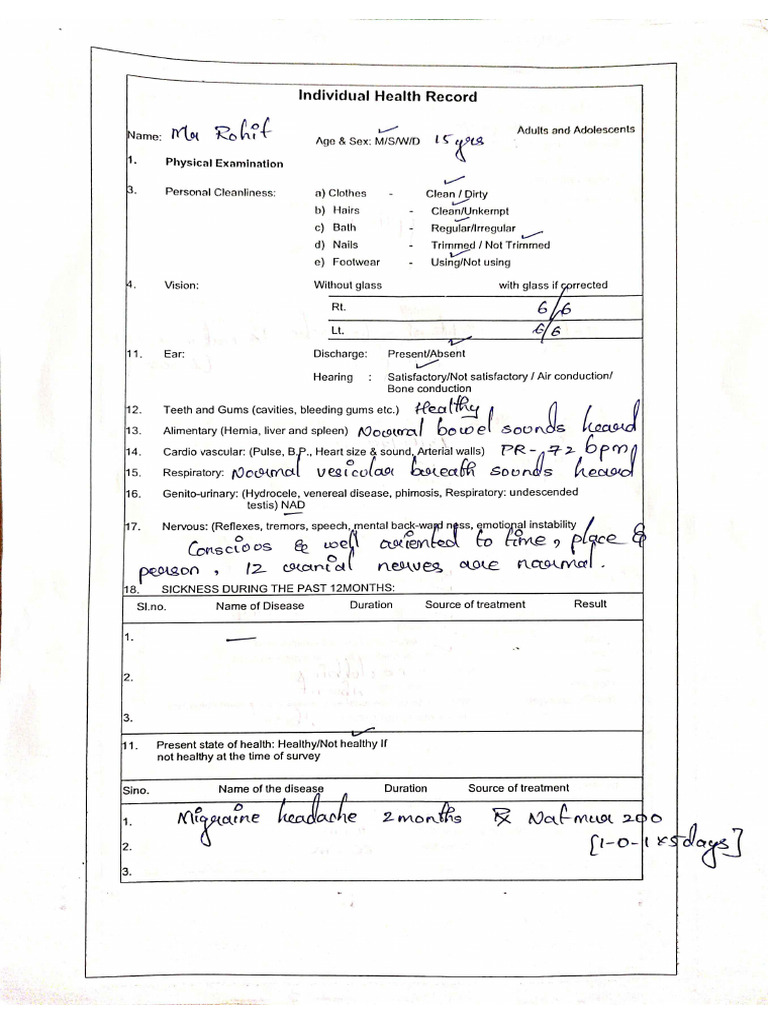 Individual Health Record
Name: Mr Rohit Age & Sex: M/S/W/D 15 yrs Adults and Adolescents
1. Physical Examination
3. Personal Cleanliness: a) Clothes - Clean / Dirty
b) Hairs - Clean/Unkempt
c) Bath - Regular/Irregular
d) Nails - Trimmed / Not Trimmed
e) Footwear - Using/Not using
4. Vision: Without glass with glass if corrected
Rt. 6/6
Lt. 6/6
11. Ear: Discharge: Present/Absent
Hearing : Satisfactory/Not satisfactory / Air conduction/
Bone conduction
12. Teeth and Gums (cavities, bleeding gums etc.) Healthy
13. Alimentary (Hernia, liver and spleen) Normal bowel sounds heard
14. Cardio vascular: (Pulse, B.P., Heart size & sound, Arterial walls) PR - 72 bpm
15. Respiratory: Normal vesicular breath sounds heard
16. Genito-urinary: (Hydrocele, venereal disease, phimosis, Respiratory: undescended
testis) NAD
17. Nervous: (Reflexes, tremors, speech, mental back-ward ness, emotional instability
Conscious & well oriented to time, place &
person, 12 cranial nerves are normal.
18. SICKNESS DURING THE PAST 12MONTHS:
Sl.no. Name of Disease Duration Source of treatment Result
1. —
2.
3.
11. Present state of health: Healthy/Not healthy If
not healthy at the time of survey
Sino. Name of the disease Duration Source of treatment
1. Migraine headache 2 months ℞ Nat mur 200
2. [1-0-1 x 5 days]
3.